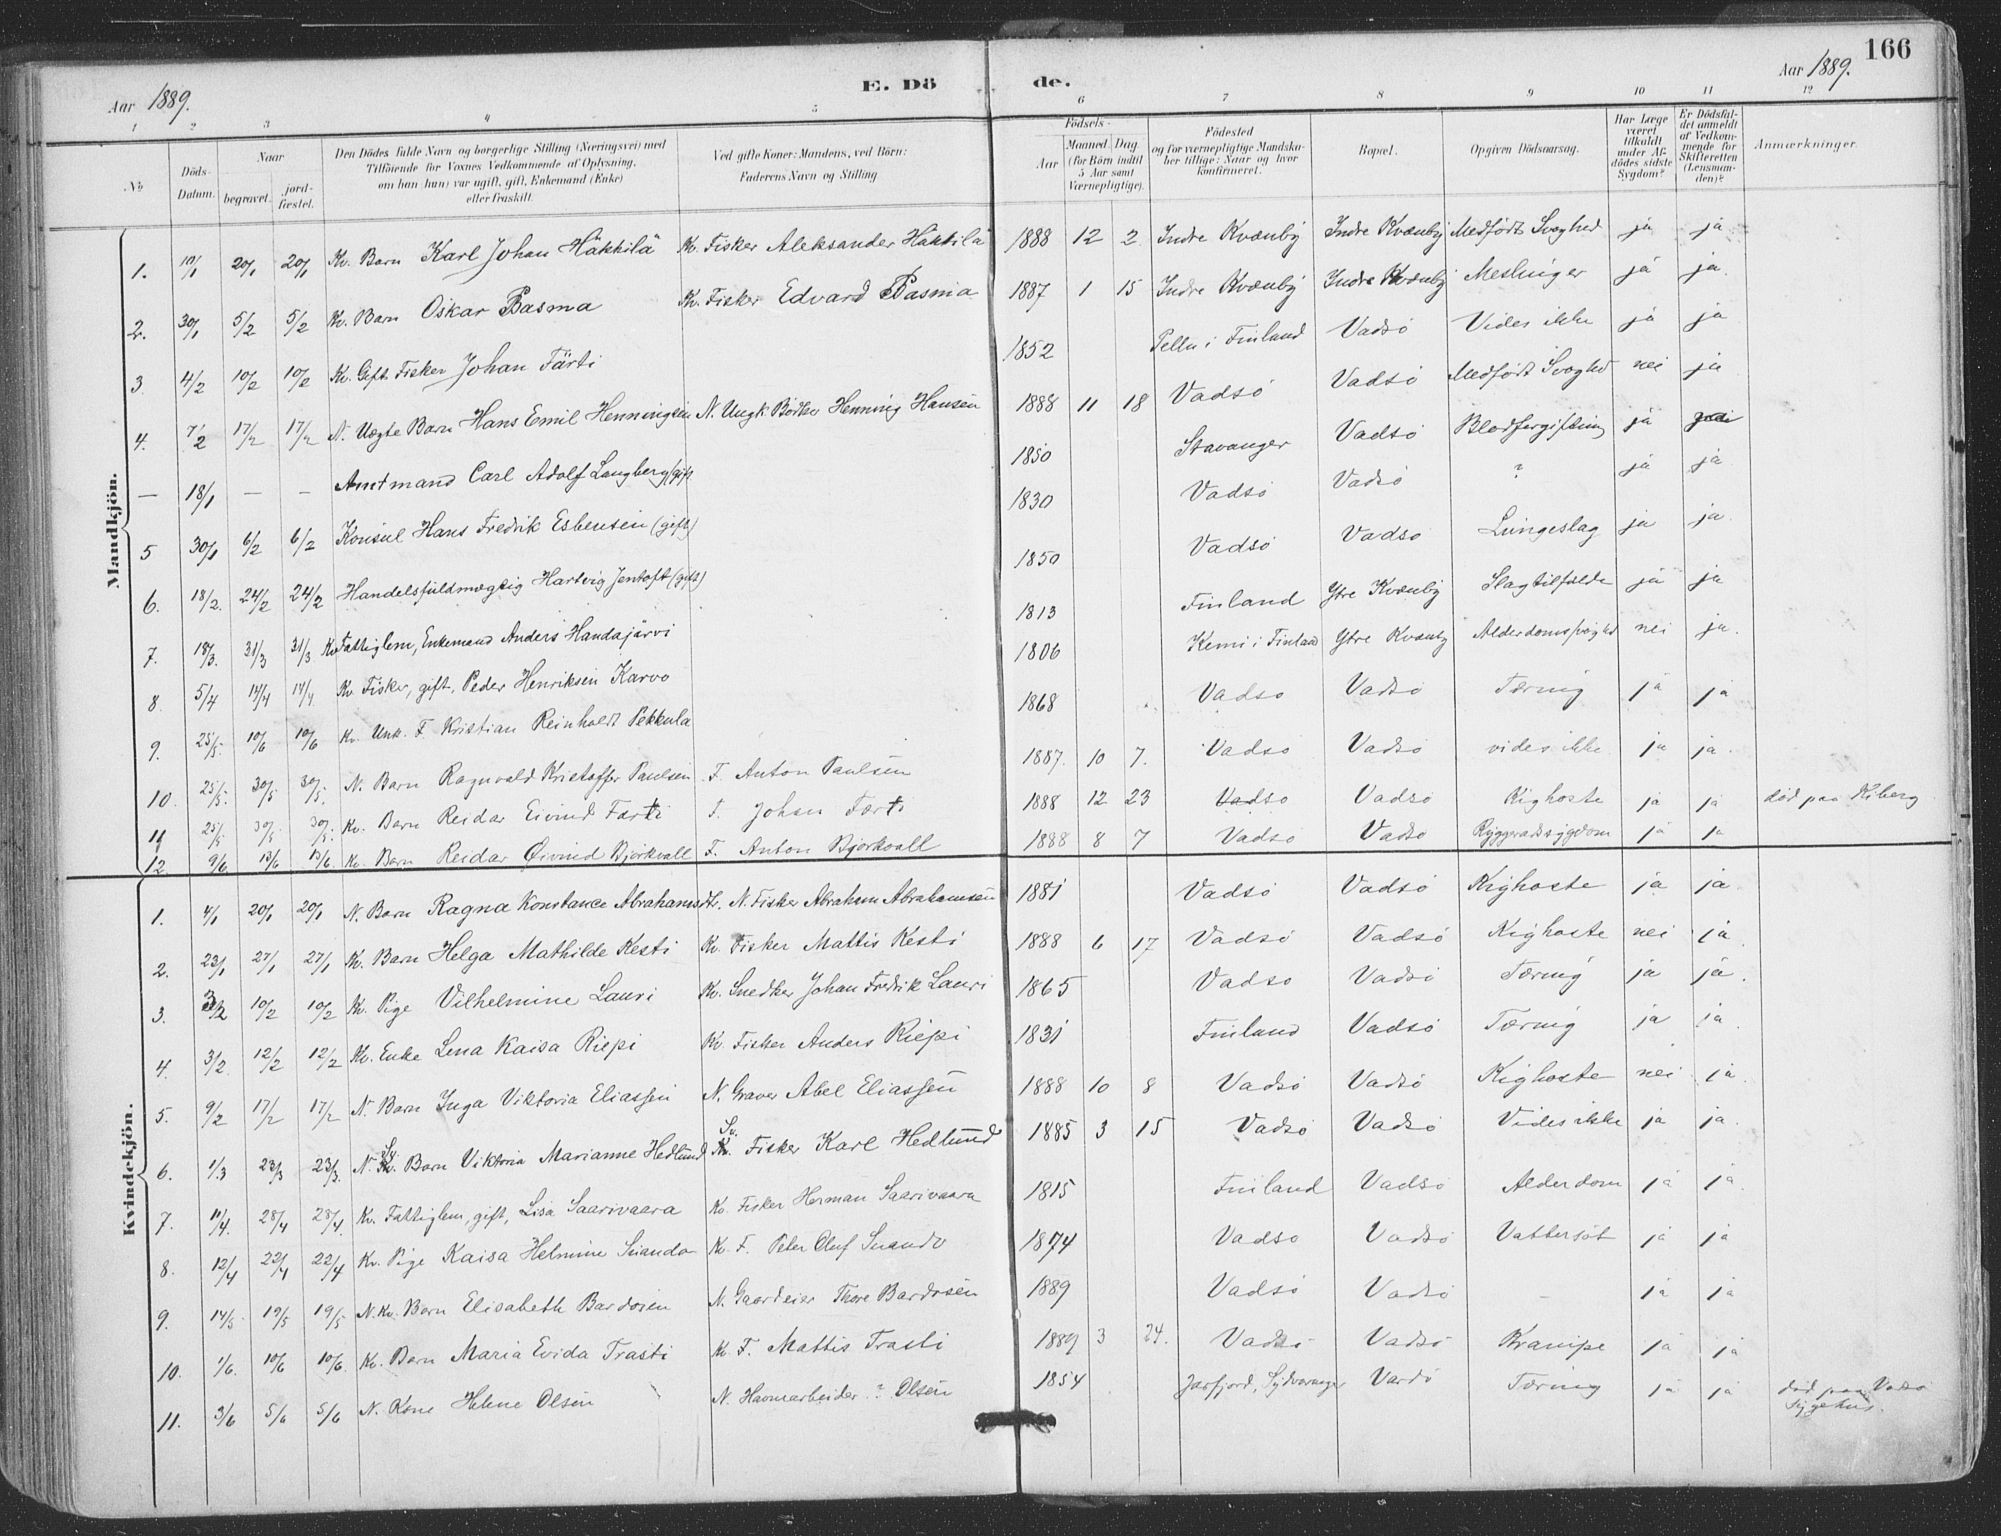 166
Aar 1889. E. Dö de. Aar 1889.
1 2 3 4 5 6 7 8 9 10 11 12
No Döds-Datum. Naar begravet. jord-fæstet. Den Dödes fulde Navn og borgerlige Stilling (Næringsvei) med Tilföiende for Voxnes Vedkommende af Oplysning, om han (hun) var ugift, gift, Enkemand (Enke) eller fraskilt. Ved gifte Koner: Mandens, ved Börn: Faderens Navn og Stilling. Födsels- Aar Maaned. Dag. (for Börn indtil 5 Aar samt Værnepligtige). Födested og for værnepligtige Mandskaber tillige: Naar og hvor konfirmeret. Bopæl. Opgiven Dödsaarsag. Har Læge været tilkaldt under Afdödes sidste Sygdom? Er Dödsfaldet anmeldt af Vedkommende for Skifteretten (Lensmanden)? Anmærkninger.
Mandkjön.
1. 10/1 20/1 20/1 Kv. Barn Karl Johan Häkkilä Kv. Fisker Aleksander Häkkilä 1888 12 2 Indre Kvænby Indre Kvænby Medfödt Svaghed ja ja
2. 30/1 5/2 5/2 Kv. Barn Oskar Basma Kv. Fisker Edvard Basma 1887 1 15 Indre Kvænby Indre Kvænby Meslinger ja ja.
3 4/2 10/2 10/2 Kv. Gift Fisker Johan Färti 1852 Pello i Finland Vadsö Vides ikke ja ja
4. 7/2 17/2 17/2 N. Uægte Barn Hans Emil Henningsen N. Ungk. Bödker Henning Hansen 1888 11 18 Vadsö Vadsö Medfödt Svaghed nei ja
— 18/1 — — Amtmand Carl Adolf Langberg (gift) 1850 Stavanger Vadsö Blodforgiftning ja
5 30/1 6/2 6/2 Konsul Hans Fredrik Esbensen (gift) 1830 Vadsö Vadsö ? ja ja
6. 18/2. 24/2 24/2 Handelsfuldmægtig Hartvig Jentoft (gift) 1850 Vadsö Vadsö Lungeslag ja ja.
7. 18/3. 31/3 31/3 Kv Fattiglem, Enkemand Anders Handajärvi 1813 Finland Ytre Kvænby Slagtilfælde ja ja
8. 5/4 14/4 14/4 Kv Fisker, gift, Peder Henriksen Karvo 1806 Kemi i Finland Ytre Kvænby Alderdomssvaghed nei ja.
9. 25/5. 10/6 10/6 Kv. Unk. F. Kristian Reinholdt Pekkula 1868 Vadsö Vadsö Tæring ja ja
10. 25/5. 30/5 30/5. N. Barn Ragnvald Kristoffer Paulsen F. Anton Paulsen 1887. 10 7. Vadsö Vadsö vides ikke ja ja.
11 25/5 30/5. 30/5. Kv. Barn Reidar Eivind Farti F. Johan Farti 1888 12 23 Vadsö Vadsö Kighoste ja ja död paa Kiberg
12. 9/6 13/6 13/6 Kv. Barn Reidar Öivind Björkvall F. Anton Björkvall 1888 8 7 Vadsö Vadsö Ryggeradssygdom ja ja
Kvindekjön.
1. 4/1 20/1 20/1 N. Barn Ragna Konstance Abrahamsdtr. N. Fisker Abraham Abrahamsen 1881 Vadsö Vadsö Kighoste ja ja
2. 23/1 27/1 27/1 Kv. Barn Helga Mathilde Kesti Kv. Fisker Mattis Kesti 1888 6 17 Vadsö Vadsö Kighoste nei ja
3. 3/2 10/2 10/2 Kv. Pige Vilhelmine Lauri Kv. Snedker Johan Fredrik Lauri 1865 Vadsö Vadsö Tæring ja ja.
4. 3/2. 12/2 12/2 Kv. Enke Lena Kaisa Riepi Kv. Fisker Anders Riepi 1831 Finland Vadsö Tæring ja ja
5. 9/2 17/2 17/2 N. Barn Inga Viktoria Eliassen N. Graver Abel Eliassen 1888 10 8 Vadsö Vadsö Kighoste nei ja
6. 1/3 23/3 23/3. N. Sv. Barn Viktoria Marianne Hedlund Sv. Fisker Karl Hedlund 1885 3 15 Vadsö Vadsö Vides ikke ja ja.
7. 11/4. 28/4 28/4. Kv. Fattiglem, gift, Lisa Saarivaara Kv. Fisker Herman Saarivaara 1815 Finland Vadsö Alderdom ja ja
8. 12/4 22/4 22/4 Kv. Pige Kaisa Helmine Suando Kv. F. Peter Oluf Suando 1874 Vadsö Vadsö Vattersot ja ja
9. 14/5 19/5 19/5 N. Kv. Barn Elisabeth Bardosen N. Gaardeier Thore Bardosen 1889 Vadsö Vadsö - ja ja
10. 1/6. 10/6 10/6. Kv. Barn Maria Evida Trasti Kv. F. Mattis Trasti 1889 3 24. Vadsö Vadsö Krampe ja ja
11. 3/6 5/6 5/6 N. Kone Helene Olsen N. Havnearbeider ? Olsen 1854 Jarfjord, Sydvaranger Vardö Tæring ja ja död paa Vadsö Sygehus.